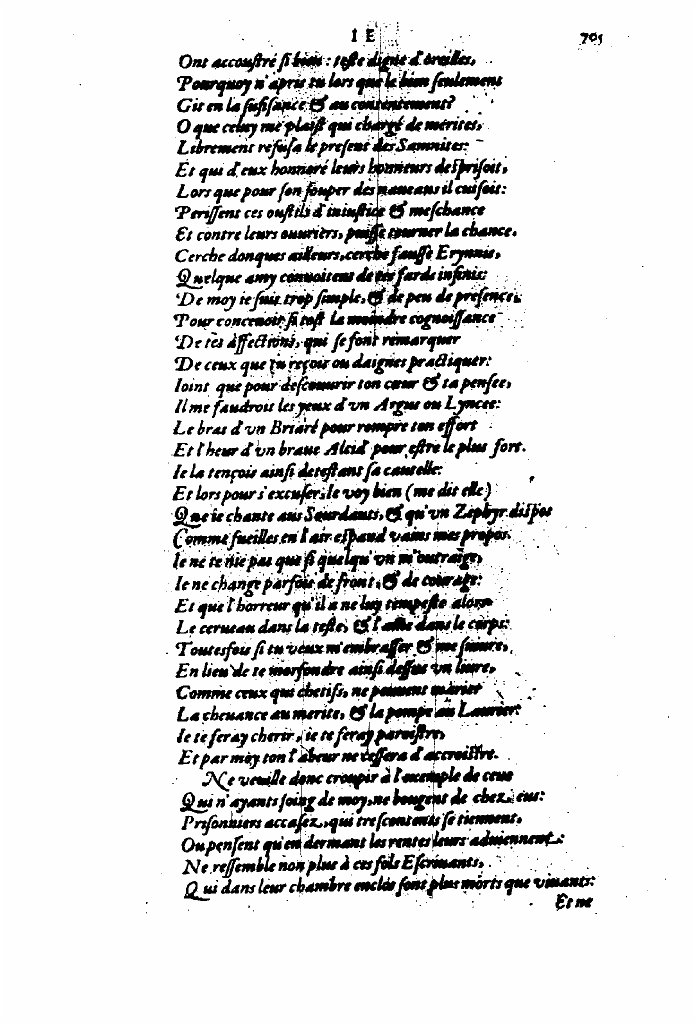 I E 705
Ont accoustré si bien : teste digne d'oreilles,
Pourquoy n'apris tu lors que le bien seulement
Git en la sufisance & au contentement?
O que celuy me plaist qui chargé de merites,
Librement refusa le present des Samnites:
Et qui d'eux honnoré leurs honneurs desprisoit,
Lors que pour son souper des naueaus il cuisoit:
Perissent ces oustils d'iniustice & meschance
Et contre leurs ouuriers, puisse tourner la chance.
Cerche donques ailleurs, cerche fausse Erynnis,
Quelque amy conuoiteus de tes fards infinis:
De moy ie suis trop simple, & de peu de presence,
Pour conceuoir si tost la moindre cognoissance
De tes affections, qui se font remarquer
De ceux que tu reçois ou daignes practiquer:
Ioint que pour descouurir ton cœur & ta pensee,
Il me faudroit les yeux d'vn Argus ou Lyncee:
Le bras d'vn Briaré pour rompre ton effort
Et l'heur d'vn braue Alcid' pour estre le plus fort.
Ie la tençois ainsi detestant sa cautelle:
Et lors pour s'excuser, ie voy bien (me dit elle)
Que ie chante aus Sourdauts, & qu'vn Zephyr dispos
Comme fueilles en l'air espand vains mes propos.
Ie ne te nie pas que si quelqu'vn m'outraige,
Ie ne change parfois de front, & de courage:
Et que l'horreur qu'il a ne luy tempeste alors
Le cerueau dans la teste, & l'ame dans le corps:
Toutesfois si tu veux m'embrasser & me suiure,
En lieu de te morfondre ainsi dessus vn liure,
Comme ceux qui chetifs, ne peuuent marier
La cheuance au merite, & la pompe au Laurier:
Ie te feray cherir, ie te feray paroistre,
Et par moy ton labeur ne cessera d'accroistre.
Ne veuille donc croupir à l'exemple de ceus
Qui n'ayants soing de moy, ne bougent de chez eus:
Prisonniers accasez, qui tres contents se tiennent,
Ou pensent qu'en dormant les rentes leurs aduiennent:
Ne ressemble non plus à ces fols Escriuants,
Qui dans leur chambre enclos sont plus morts que viuants:
Et ne